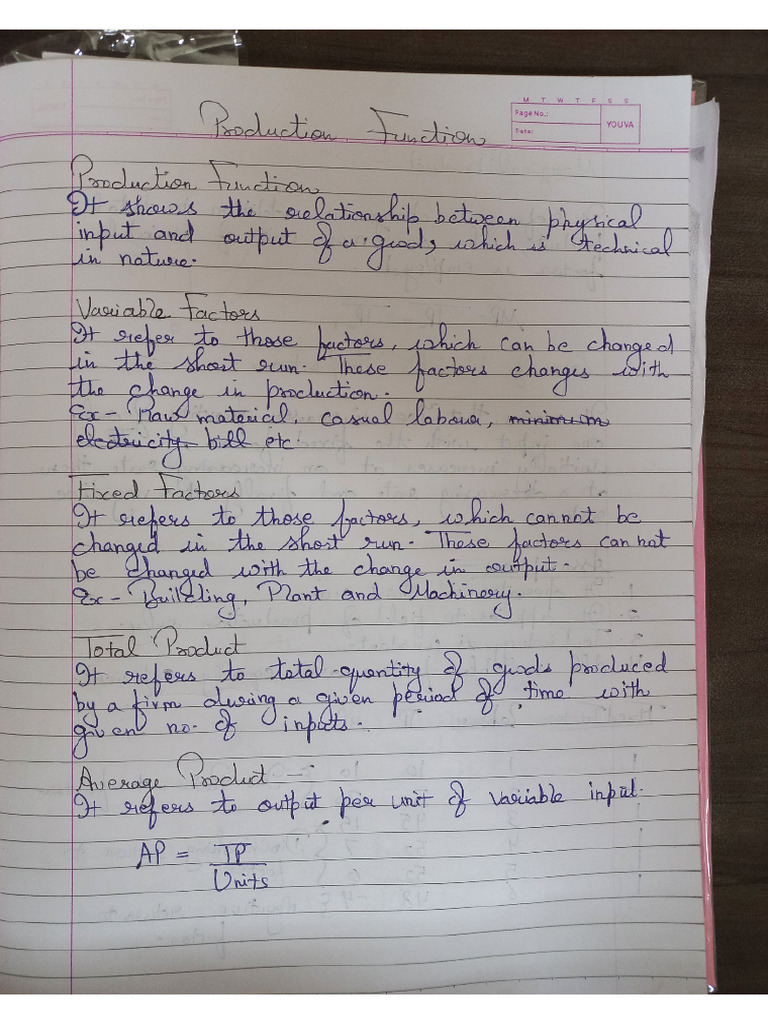 Production Function
M T W T F S S
Page No.:
Date:
YOUVA
Production Function
It shows the relationship between physical
input and output of a good, which is technical
in nature.
Variable Factors
It refer to those factors, which can be changed
in the short run. These factors changes with
the change in production.
Ex- Raw material, casual labour, minimum
electricity bill etc
Fixed Factors
It refers to those factors, which cannot be
changed in the short run. These factors can not
be changed with the change in output.
Ex- Building, Plant and Machinery.
Total Product
It refers to total quantity of goods produced
by a firm during a given period of time with
given no. of inputs.
Average Product -
It refers to output per unit of variable input.
AP = TP
Units